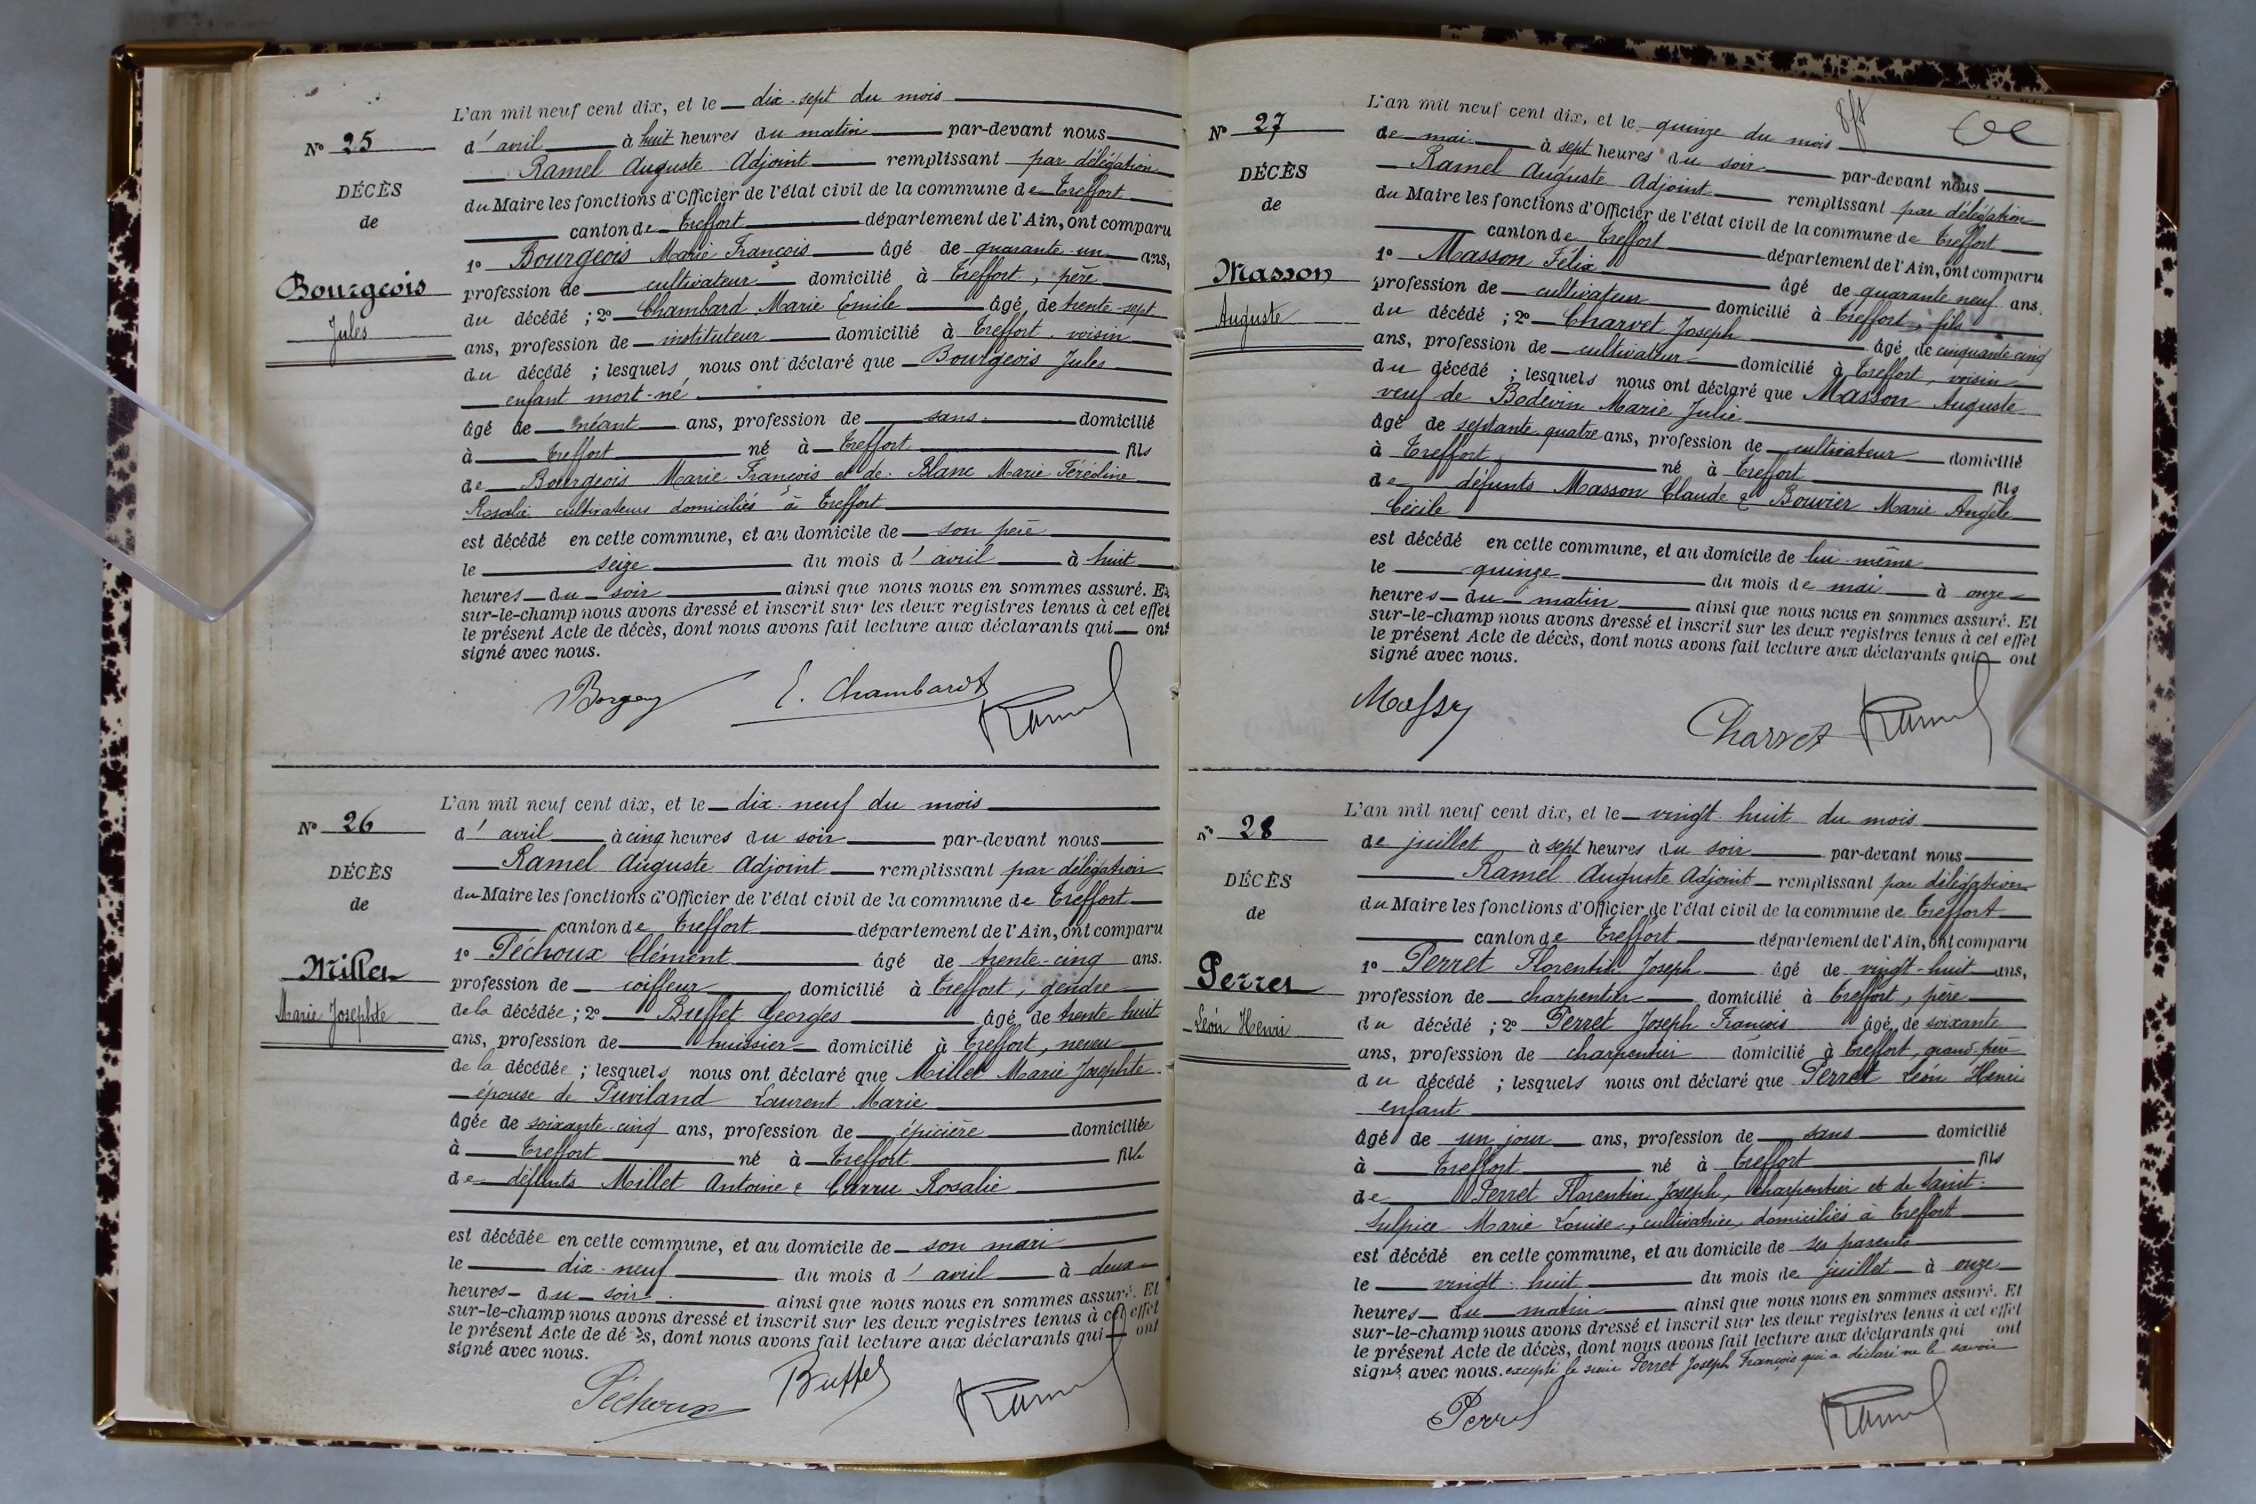 L'an mil neuf cent dix, et le dix-sept du mois
N° 25
d'avril à huit heures du matin par-devant nous
Ramel Auguste Adjoint remplissant par délégation
DÉCÈS
du Maire les fonctions d'Officier de l'état civil de la commune de Treffort
de
canton de Treffort département de l'Ain, ont comparu
1° Bourgeois Marie François âgé de quarante-un ans,
Bourgeois
profession de cultivateur domicilié à Treffort, père
Jules
du décédé ; 2° Chambard Marie Emile âgé de trente-sept
ans, profession de instituteur domicilié à Treffort, voisin
du décédé ; lesquels nous ont déclaré que Bourgeois Jules
enfant mort-né
âgé de néant ans, profession de sans domicilié
à Treffort né à Treffort fils
de Bourgeois Marie François et de Blanc Marie
Rosalie cultivateurs domiciliés à Treffort
est décédé en cette commune, et au domicile de son père
le seize du mois d'avril à huit
heures du soir ainsi que nous nous en sommes assuré. Et
sur-le-champ nous avons dressé et inscrit sur les deux registres tenus à cet effet
le présent Acte de décès, dont nous avons fait lecture aux déclarants qui ont
signé avec nous.
E. Chambard
Ramel
L'an mil neuf cent dix, et le dix-neuf du mois
N° 26
d'avril à cinq heures du soir par-devant nous
Ramel Auguste Adjoint remplissant par délégation
DÉCÈS
du Maire les fonctions d'Officier de l'état civil de la commune de Treffort
de
canton de Treffort département de l'Ain, ont comparu
1° Péchoux Clément âgé de trente-cinq ans.
Millet
profession de coiffeur domicilié à Treffort, gendre
Marie Josephte
de la décédée ; 2° Buffet Georges âgé de trente-huit
ans, profession de huissier domicilié à Treffort, neveu
de la décédée ; lesquels nous ont déclaré que Millet Marie Josephte
épouse de Puviland Laurent Marie
âgée de soixante-cinq ans, profession de épicière domiciliée
à Treffort né à Treffort fille
de défunts Millet Antoine & Carru Rosalie
est décédée en cette commune, et au domicile de son mari
le dix-neuf du mois d'avril à deux
heures du soir ainsi que nous nous en sommes assuré. Et
sur-le-champ nous avons dressé et inscrit sur les deux registres tenus à cet effet
le présent Acte de décès, dont nous avons fait lecture aux déclarants qui ont
signé avec nous.
Péchoux Buffet Ramel
L'an mil neuf cent dix, et le quinze du mois
N° 27
de mai à sept heures du soir par-devant nous
Ramel Auguste Adjoint remplissant par délégation
DÉCÈS
du Maire les fonctions d'Officier de l'état civil de la commune de Treffort
de
canton de Treffort département de l'Ain, ont comparu
1° Masson Félix âgé de quarante neuf ans.
Masson
profession de cultivateur domicilié à Treffort, fils
Auguste
du décédé ; 2° Charvet Joseph âgé de cinquante cinq
ans, profession de cultivateur domicilié à Treffort, voisin
du décédé ; lesquels nous ont déclaré que Masson Auguste
veuf de Bodevin Marie Julie
âgé de septante quatre ans, profession de cultivateur domicilié
à Treffort né à Treffort fils
de défunts Masson Claude & Bouvier Marie Angèle
Cécile
est décédé en cette commune, et au domicile de lui-même
le quinze du mois de mai à onze
heures du matin ainsi que nous nous en sommes assuré. Et
sur-le-champ nous avons dressé et inscrit sur les deux registres tenus à cet effet
le présent Acte de décès, dont nous avons fait lecture aux déclarants qui ont
signé avec nous.
Charvet Ramel
L'an mil neuf cent dix, et le vingt-huit du mois
N° 28
de juillet à sept heures du soir par-devant nous
Ramel Auguste Adjoint remplissant par délégation
DÉCÈS
du Maire les fonctions d'Officier de l'état civil de la commune de Treffort
de
canton de Treffort département de l'Ain, ont comparu
1° Perret Florentin Joseph âgé de vingt-huit ans,
Perret
profession de charpentier domicilié à Treffort, père
Léon Henri
du décédé ; 2° Perret Joseph François âgé de soixante
ans, profession de charpentier domicilié à Treffort, grand-père
du décédé ; lesquels nous ont déclaré que Perret Léon Henri
enfant
âgé de un jour ans, profession de sans domicilié
à Treffort né à Treffort fils
de Perret Florentin Joseph, charpentier et de Saint-
Sulpice Marie Louise, cultivatrice, domiciliés à Treffort
est décédé en cette commune, et au domicile de ses parents
le vingt-huit du mois de juillet à onze
heures du matin ainsi que nous nous en sommes assuré. Et
sur-le-champ nous avons dressé et inscrit sur les deux registres tenus à cet effet
le présent Acte de décès, dont nous avons fait lecture aux déclarants qui ont
signé avec nous. excepté le sieur Perret Joseph François qui a déclaré ne le savoir
Perret Ramel